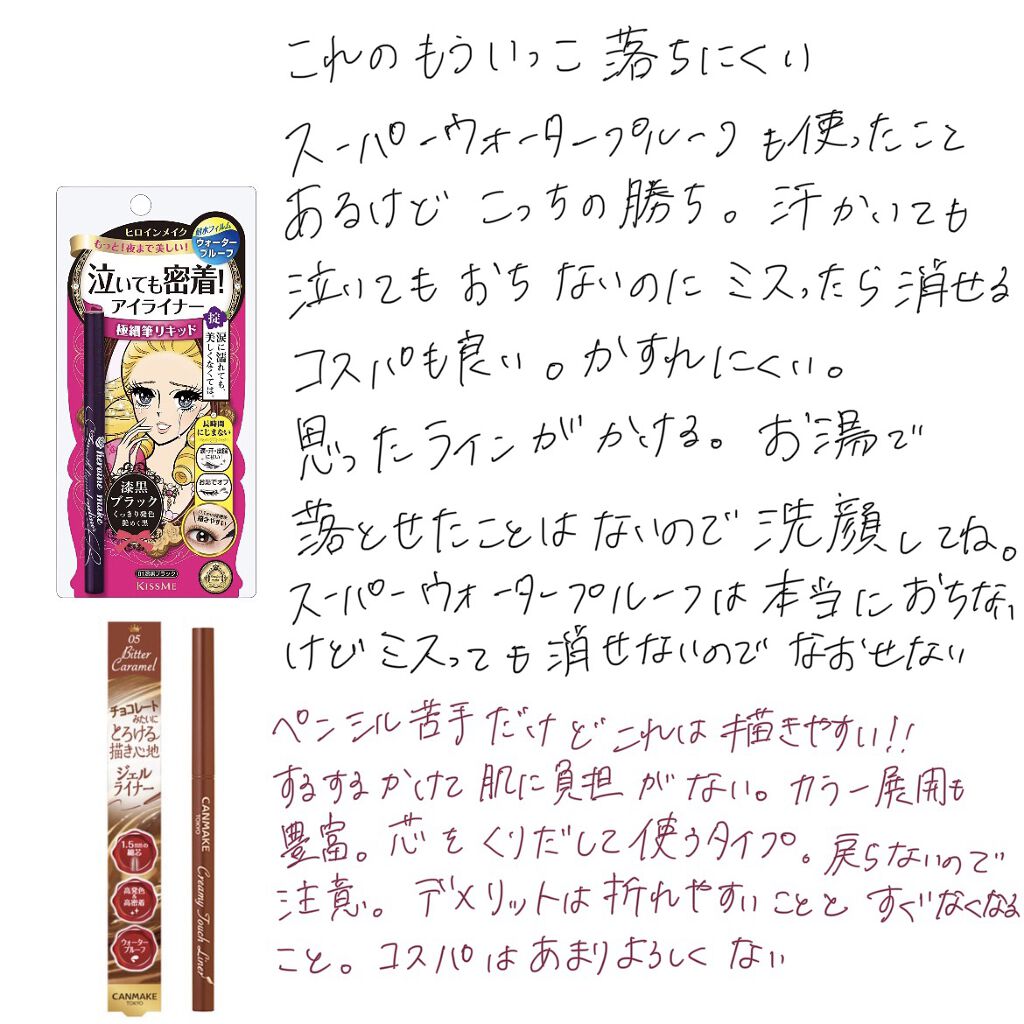 これのもういっこ落ちにくい
スーパーウォータープルーフも使ったこと
あるけどこっちの勝ち。汗かいても
泣いてもおちないのにミスったら消せる
コスパも良い。かすれにくい。
思ったラインがかける。お湯で
落とせたことはないので洗顔してね。
スーパーウォータープルーフは本当におちない
けどミスっても消せないのでなおせない
ヒロインメイク
もっと!夜まで美しい!
耐水フィルム
ウォーター
プルーフ
泣いても密着!
アイライナー
極細筆リキッド
掟
涙に濡れても、
美しくなくては。
長時間
にじまない
涙・汗・皮脂
に強い
お湯でオフ
描きやすい
heroine make
漆黒
ブラック
くっきり発色
艶めく黒
01漆黒ブラック
KISSME
ペンシル苦手だけどこれは描きやすい!!
するするかけて肌に負担がない。カラー展開も
豊富。芯をくりだして使うタイプ。戻らないので
注意。デメリットは折れやすいことと すぐなくなる
こと。コスパはあまりよろしくない
05
Bitter
Caramel
チョコレート
みたいに
とろける
描き心地
ジェル
ライナー
1.5mmの
細芯
高発色&
高密着
ウォーター
プルーフ
CANMAKE
TOKYO
CANMAKE
TOKYO
Creamy Touch Liner